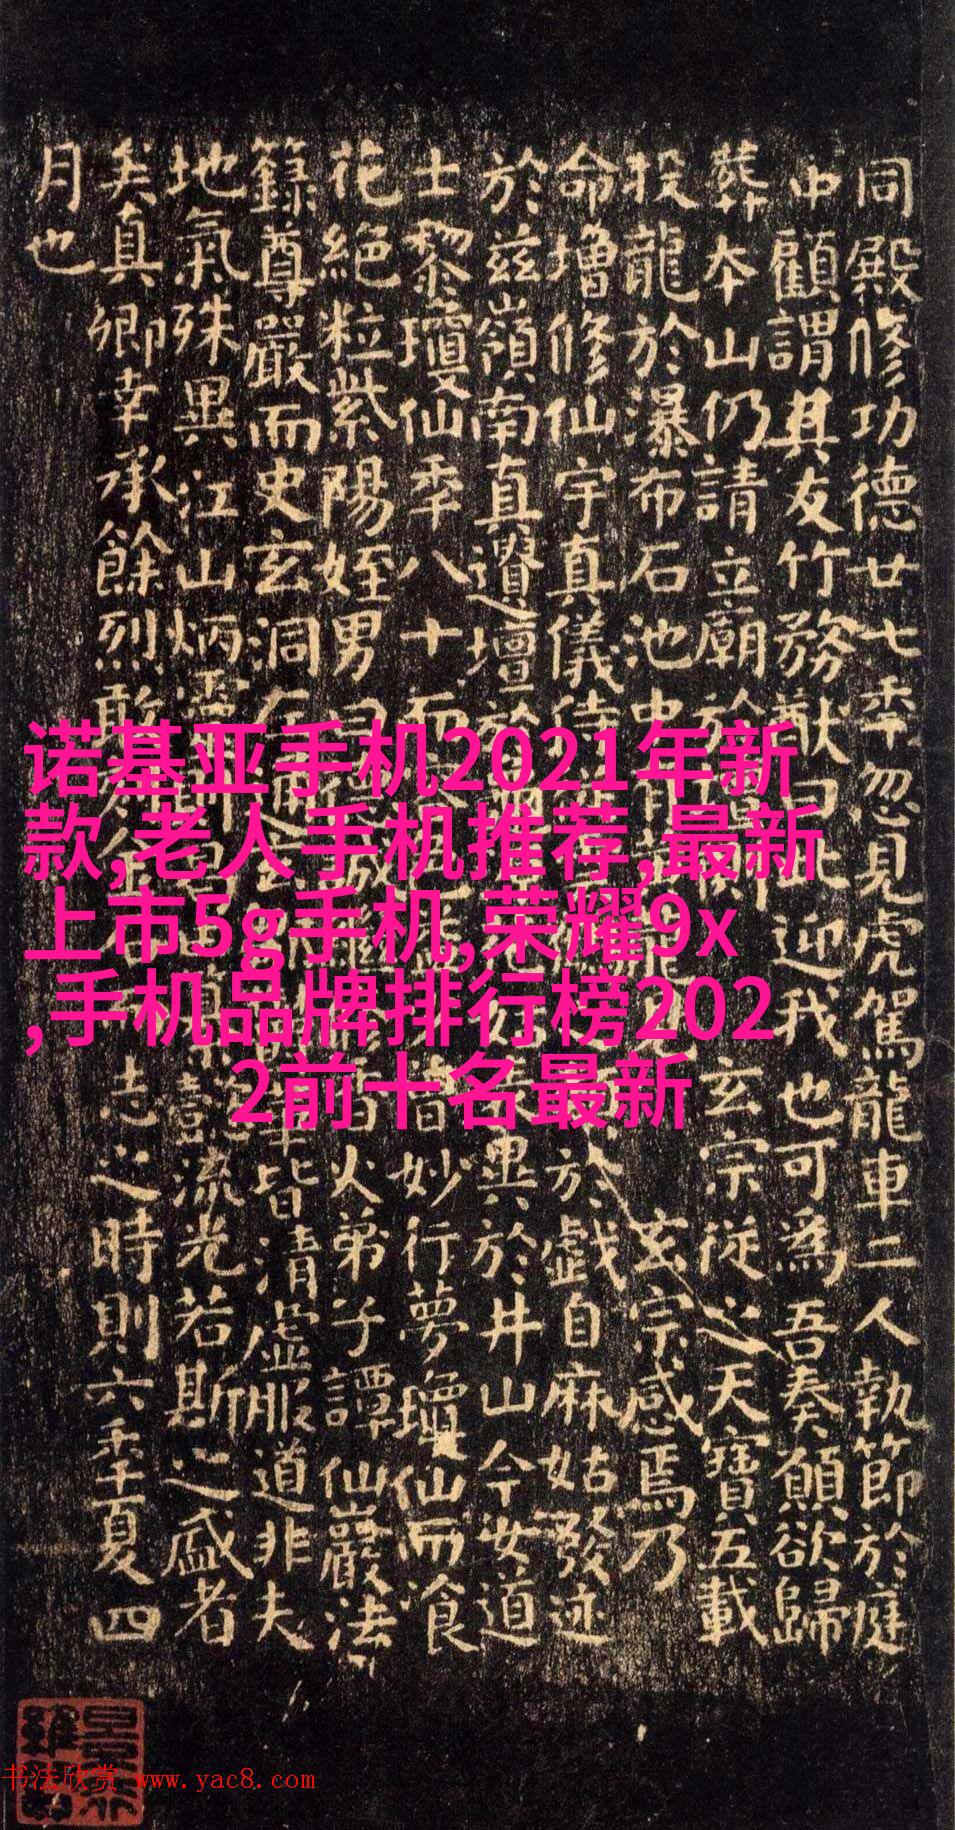 同殿修功德廿七年忽見虎駕龍車二人執節於庭
中顧謂其友竹務猷曰此迎我也可為吾奏願欲歸
葬本山仍請立廟於玄宗從之天寶五載
投龍於瀑布石池中玄宗感焉乃
命增修仙宇真儀侍於戲自麻姑發迹
於兹嶺南真遺壇於異於井山今女道
士黎瓊仙年八十而曾妙行夢瓊仙而飡
花絕粒紫陽姪男曰誠火弟子譚仙巖法
籙尊嚴而史玄洞左皆清虛服道非夫
地氣殊異江山炳靈則懿流光若斯之盛者
矣真卿幸承餘烈敢金石志之時則六年夏四
月也
诺基亚手机2021年新
款,老人手机推荐,最新
上市5g手机,荣耀9x
,手机品牌排行榜202
2前十名最新
书法欣赏 www.yac8.com